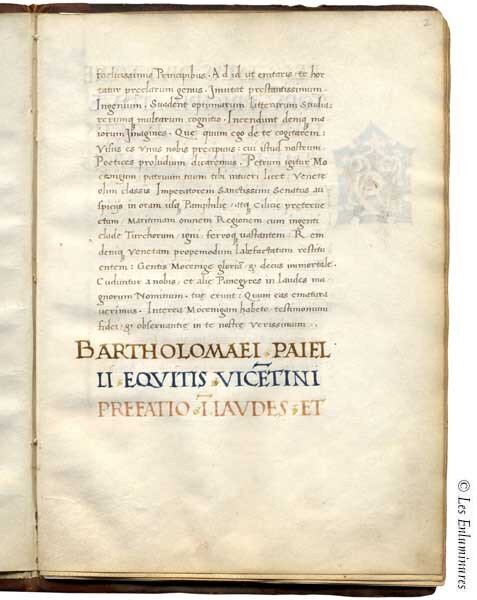 2
foelicissimis Principibus. Ad id ut enitaris: te hor
tatur preclarum genus. Invitat prestantissimum
Ingenium. Suadent optimarum litterarum Studia:
rerumq multarum cognitio. Incendunt deniq ma
iorum Imagines. Que quum ego de te cogitarem:
Visus es unus nobis precipuus: cui istud nostrum
Poetices proludium dicaremus. Petrum igitur Mo
cenigum patruum tuum tibi intueri licet: Venete
olim classis Imperatorem Sanctissimi Senatus au
spicijs in oram usq Pamphilie, atq Cilicie pretervec
ctum: Maritimam omnem Regionem cum ingenti
clade Turchorum, igni, ferroq vastantem: Rem
deniq Venetam propemodum labefactatam restitu
entem: Gentis Mocenige gloriā: & decus immortale.
Cuduntur a nobis, et alie Panegyres in laudes ma
gnorum Nominum, tue erunt: Quum eas ematura
verimus. Interea Mocenigam habeto testimonium
fidei: & observantie in te nostre verissimum.
BARTHOLOMAEI · PAIEL
LI · EQVITIS · VICĒTINI
PREFATIO · Ī · LAVDES · ET
© Les Enluminures